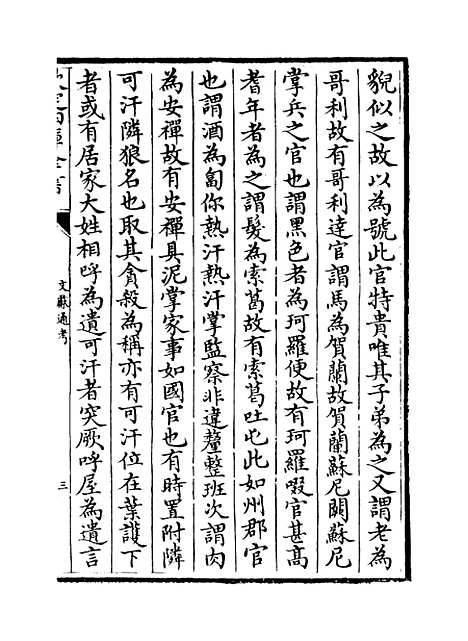 貎似之故以為號此官特貴唯其子弟為之又謂老為
哥利故有哥利達官謂馬為賀蘭故賀蘭蘇尼闕蘇尼
掌兵之官也謂黑色者為珂羅便故有珂羅啜官甚高
耆年者為之謂髮為索葛故有索葛吐屯此如州郡官
也謂酒為匐你熱汗熱汗掌監察非違釐整班次謂肉
為安禪故有安禪具泥掌家事如國官也有時置附隣
可汗隣狼名也取其貪殺為稱亦有可汗位在葉護下
者或有居家大姓相呼為遺可汗者突厥呼屋為遺言
文獻通考
三